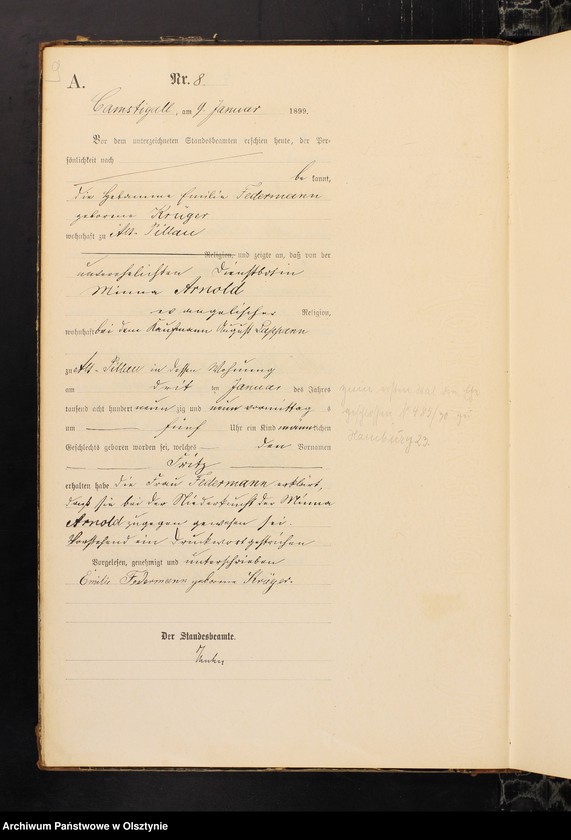 A.
Nr. 8.
Camstigall, am 9. Januar 1899.
Vor dem unterzeichneten Standesbeamten erschien heute, der Per-
sönlichkeit nach
be kannt,
die Hebamme Emilie Federmann
geborene Krüger
wohnhaft zu Alt-Pillau
Religion, und zeigte an, daß von der
unverehelichten Dienstbotin
Minna Arnold
evangelischer Religion,
wohnhaft bei dem Kaufmann August Lappann
zu Alt-Pillau in dessen Wohnung
am drit ten Januar des Jahres
tausend acht hundert neun zig und neun vormittag s
um fünf Uhr ein Kind männlichen
Geschlechts geboren worden sei, welches den Vornamen
Fritz
erhalten habe. Die Frau Federmann erklärt,
daß sie bei der Niederkunft der Minna
Arnold zugegen gewesen sei.
Vorstehend ein Druckwort gestrichen
Vorgelesen, genehmigt und unterschrieben
Emilie Federmann geborene Krüger.
Der Standesbeamte.
Hamburg 23.
Archiwum Państwowe w Olsztynie